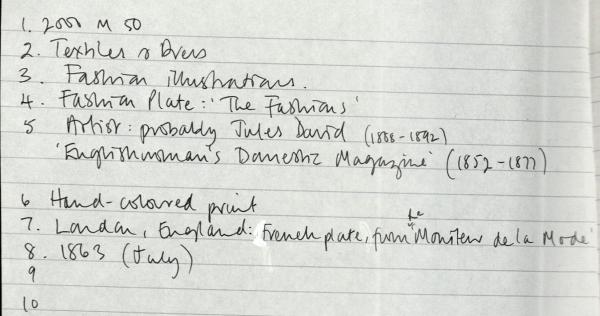 1. 2000 M 50
2. Textiles & Dress
3. Fashion illustrations.
4. Fashion Plate: 'The Fashions'
5 Artist: probably Jules David (1808-1892)
'Englishwoman's Domestic Magazine' (1852-1877)
6 Hand-coloured print
7. London, England: French plate, from 'Le Moniteur de la Mode'
8. 1863 (July)
9
10